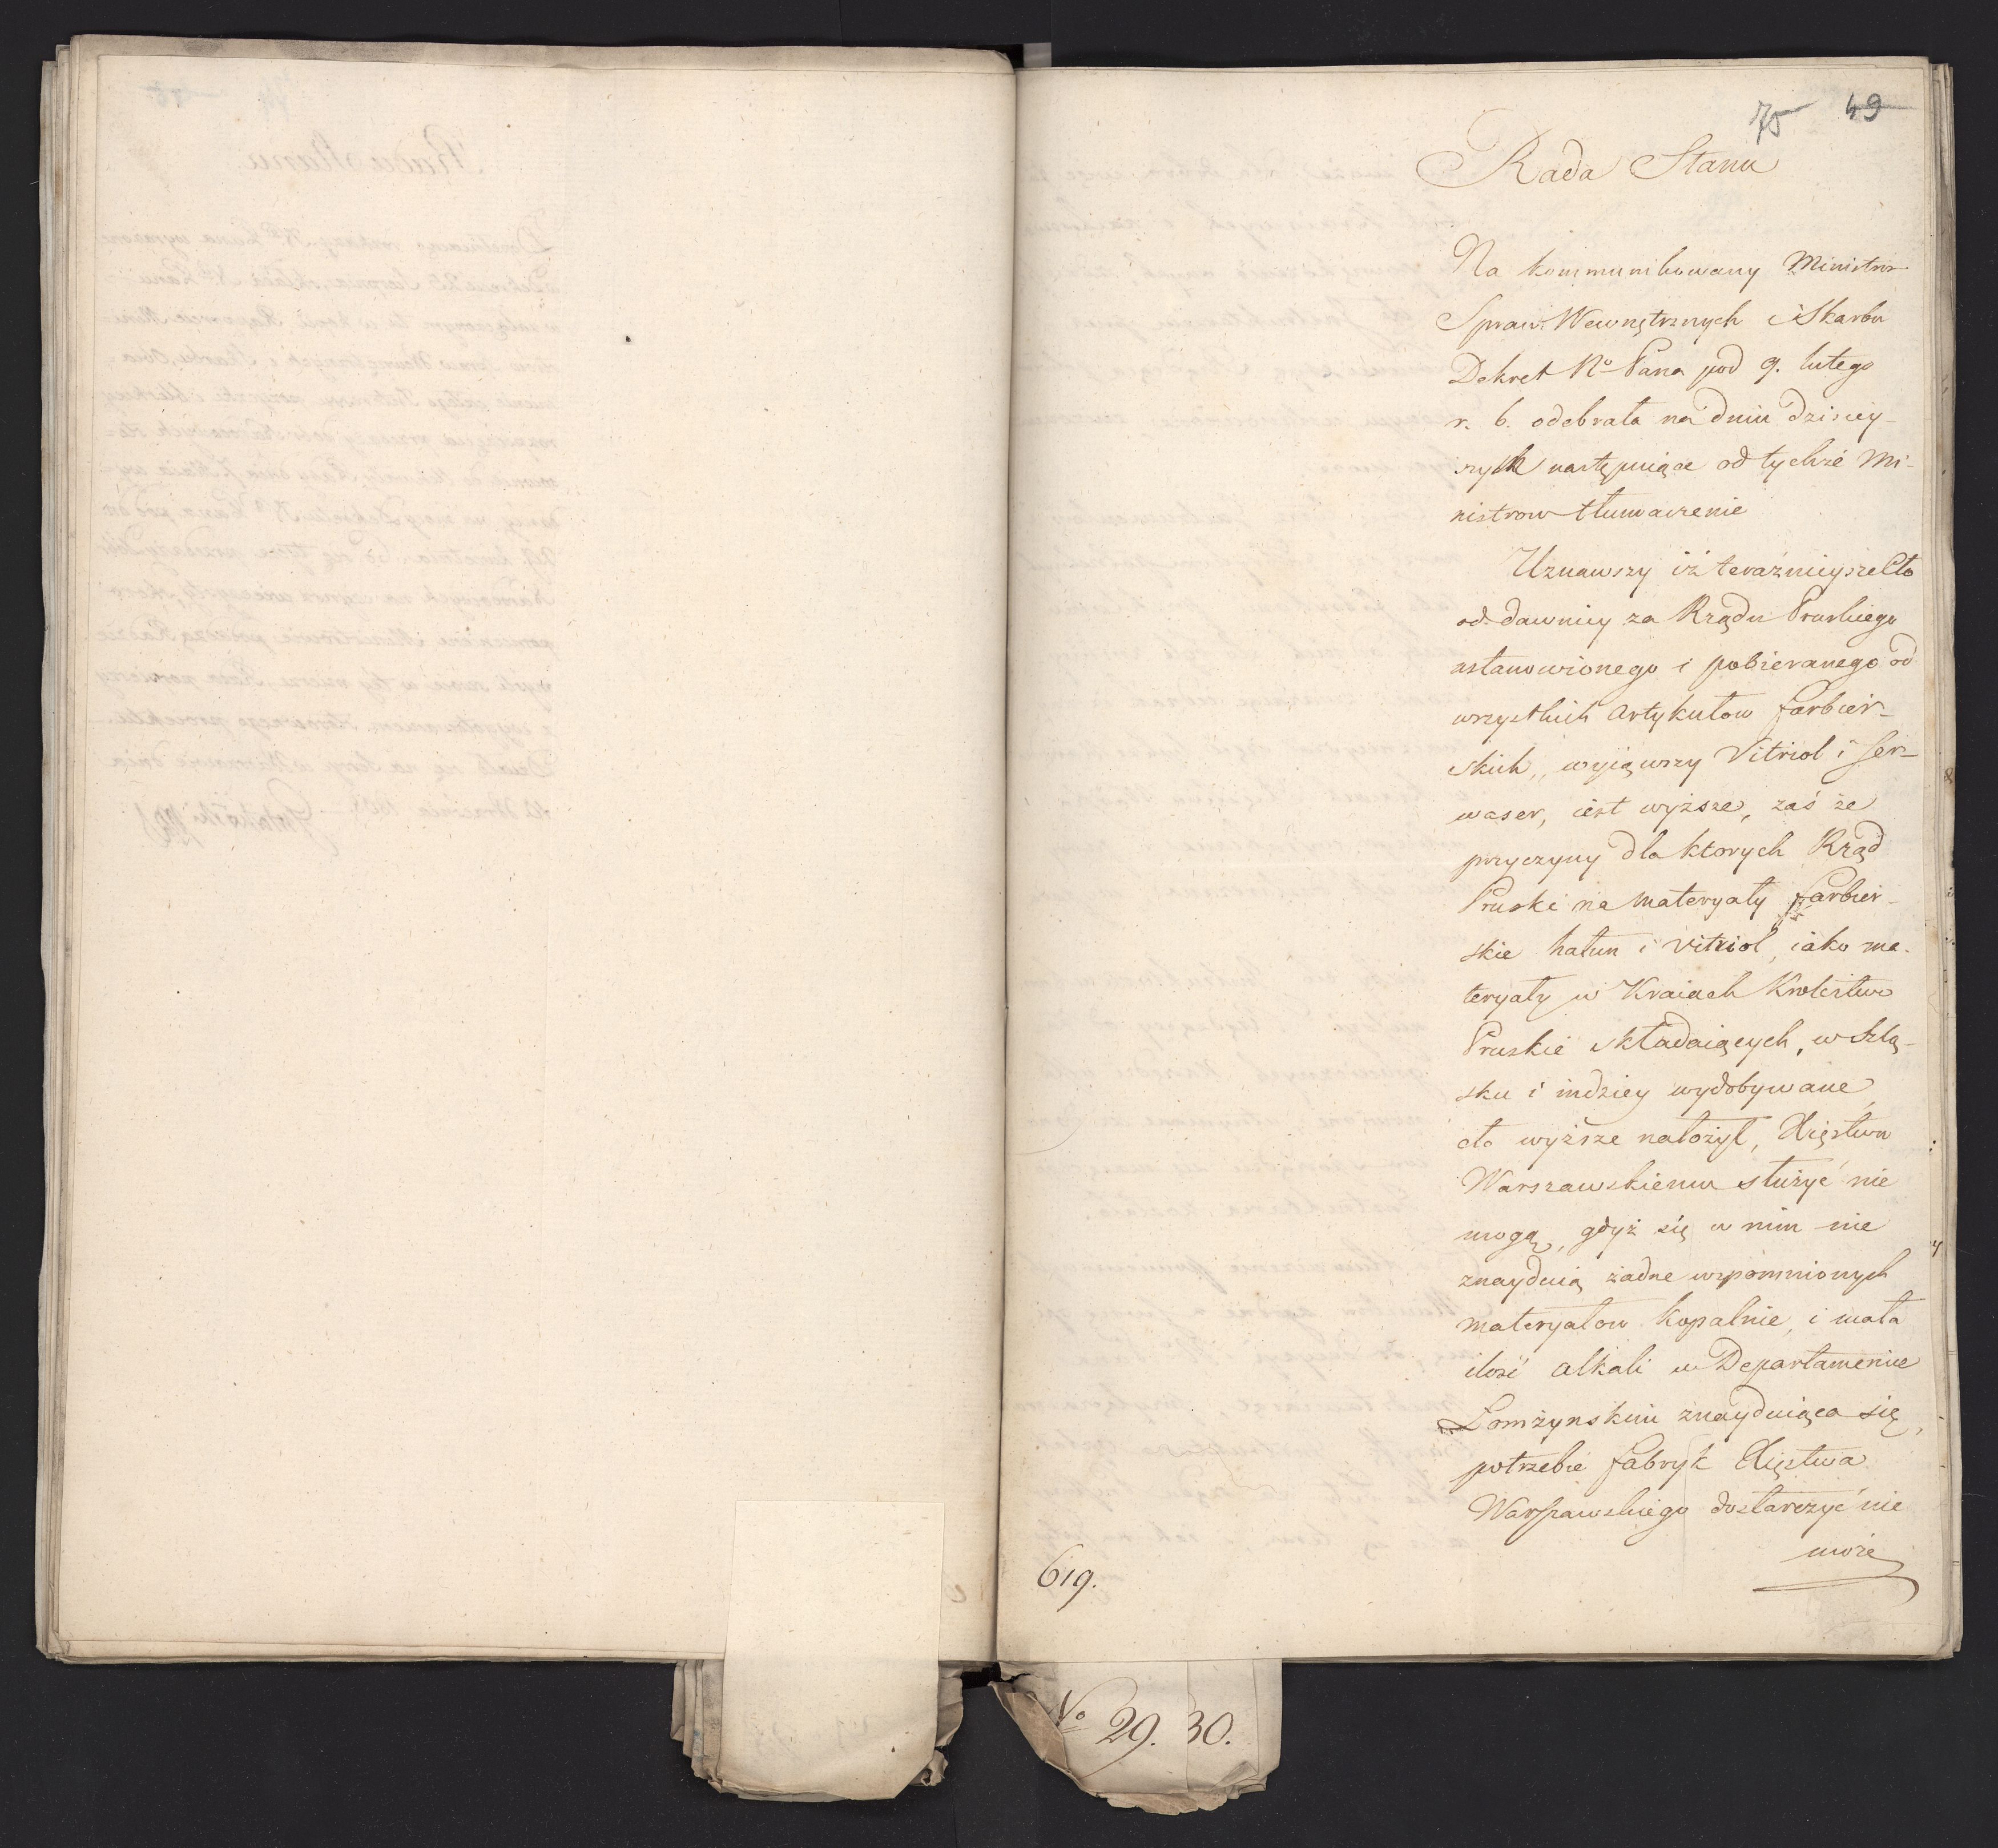 75 49
Rada Stanu
Na kommunikowany Ministrom
Spraw Wewnętrznych i Skarbu
Dekret No Pana pod 9. lutego
r. b. odebrała na dniu dzisiey-
szym następuiące od tychże Mi-
nistrow tłumaczenie
Uznawszy iż teraźnieysze Cło
od dawniey za Rządu Pruskiego
ustanowionego i pobieranego od
wszystkich artykułow farbier-
skich, wyiąwszy Vitriol i Ser-
waser, iest wyższe, zaś że
przyczyny dla ktorych Rząd
Pruski na materyały farbier-
skie hałun i vitriol, iako ma-
teryały w Kraiach Krolestwo
Pruskie składaiących, w Szlą-
sku i indziey wydobywane
cło wyższe nałożył, Xięstwu
Warszawskiemu służyć nie
mogą, gdyż się w nim nie
znayduią żadne wspomnionych
materyałow kopalnie, i mała
ilość alkali w Departamencie
Łomżynskim znayduiąca się,
potrzebie fabryk Xięstwa
Warszawskiego dostarczyć nie
może
619.
No 29. 30.